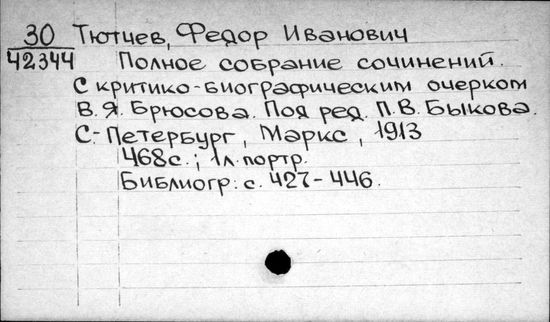 30 Тютчев, Федор Иванович
42344 Полное собрание сочинений.
С критико-биографическим очерком
В.Я. Брюсова. Под ред. П.В. Быкова.
С.-Петербург, Маркс, 1913
468с.; 1л. портр.
Библиогр: с. 427-446.